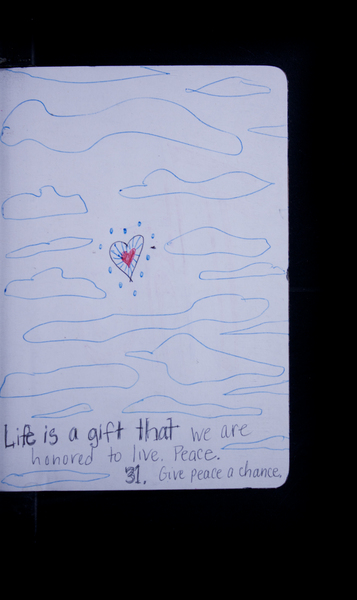 Life is a gift that we are
honored to live. Peace.
31. Give peace a chance.